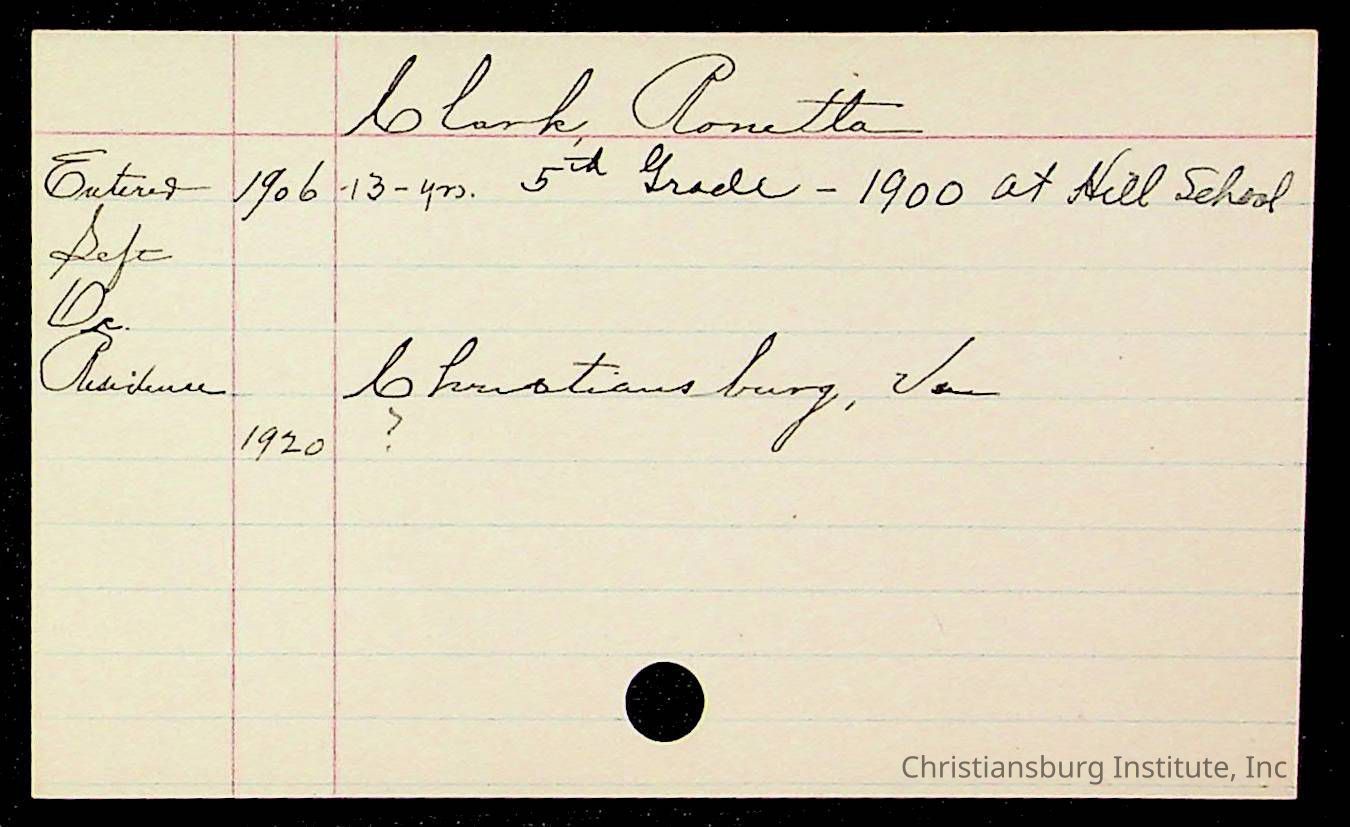 Clark, Ronetta
Entered 1906 -13-yrs. 5th Grade - 1900 at Hill School
Left
Oc.
Residence Christiansburg, Va
1920 ?
Christiansburg Institute, Inc